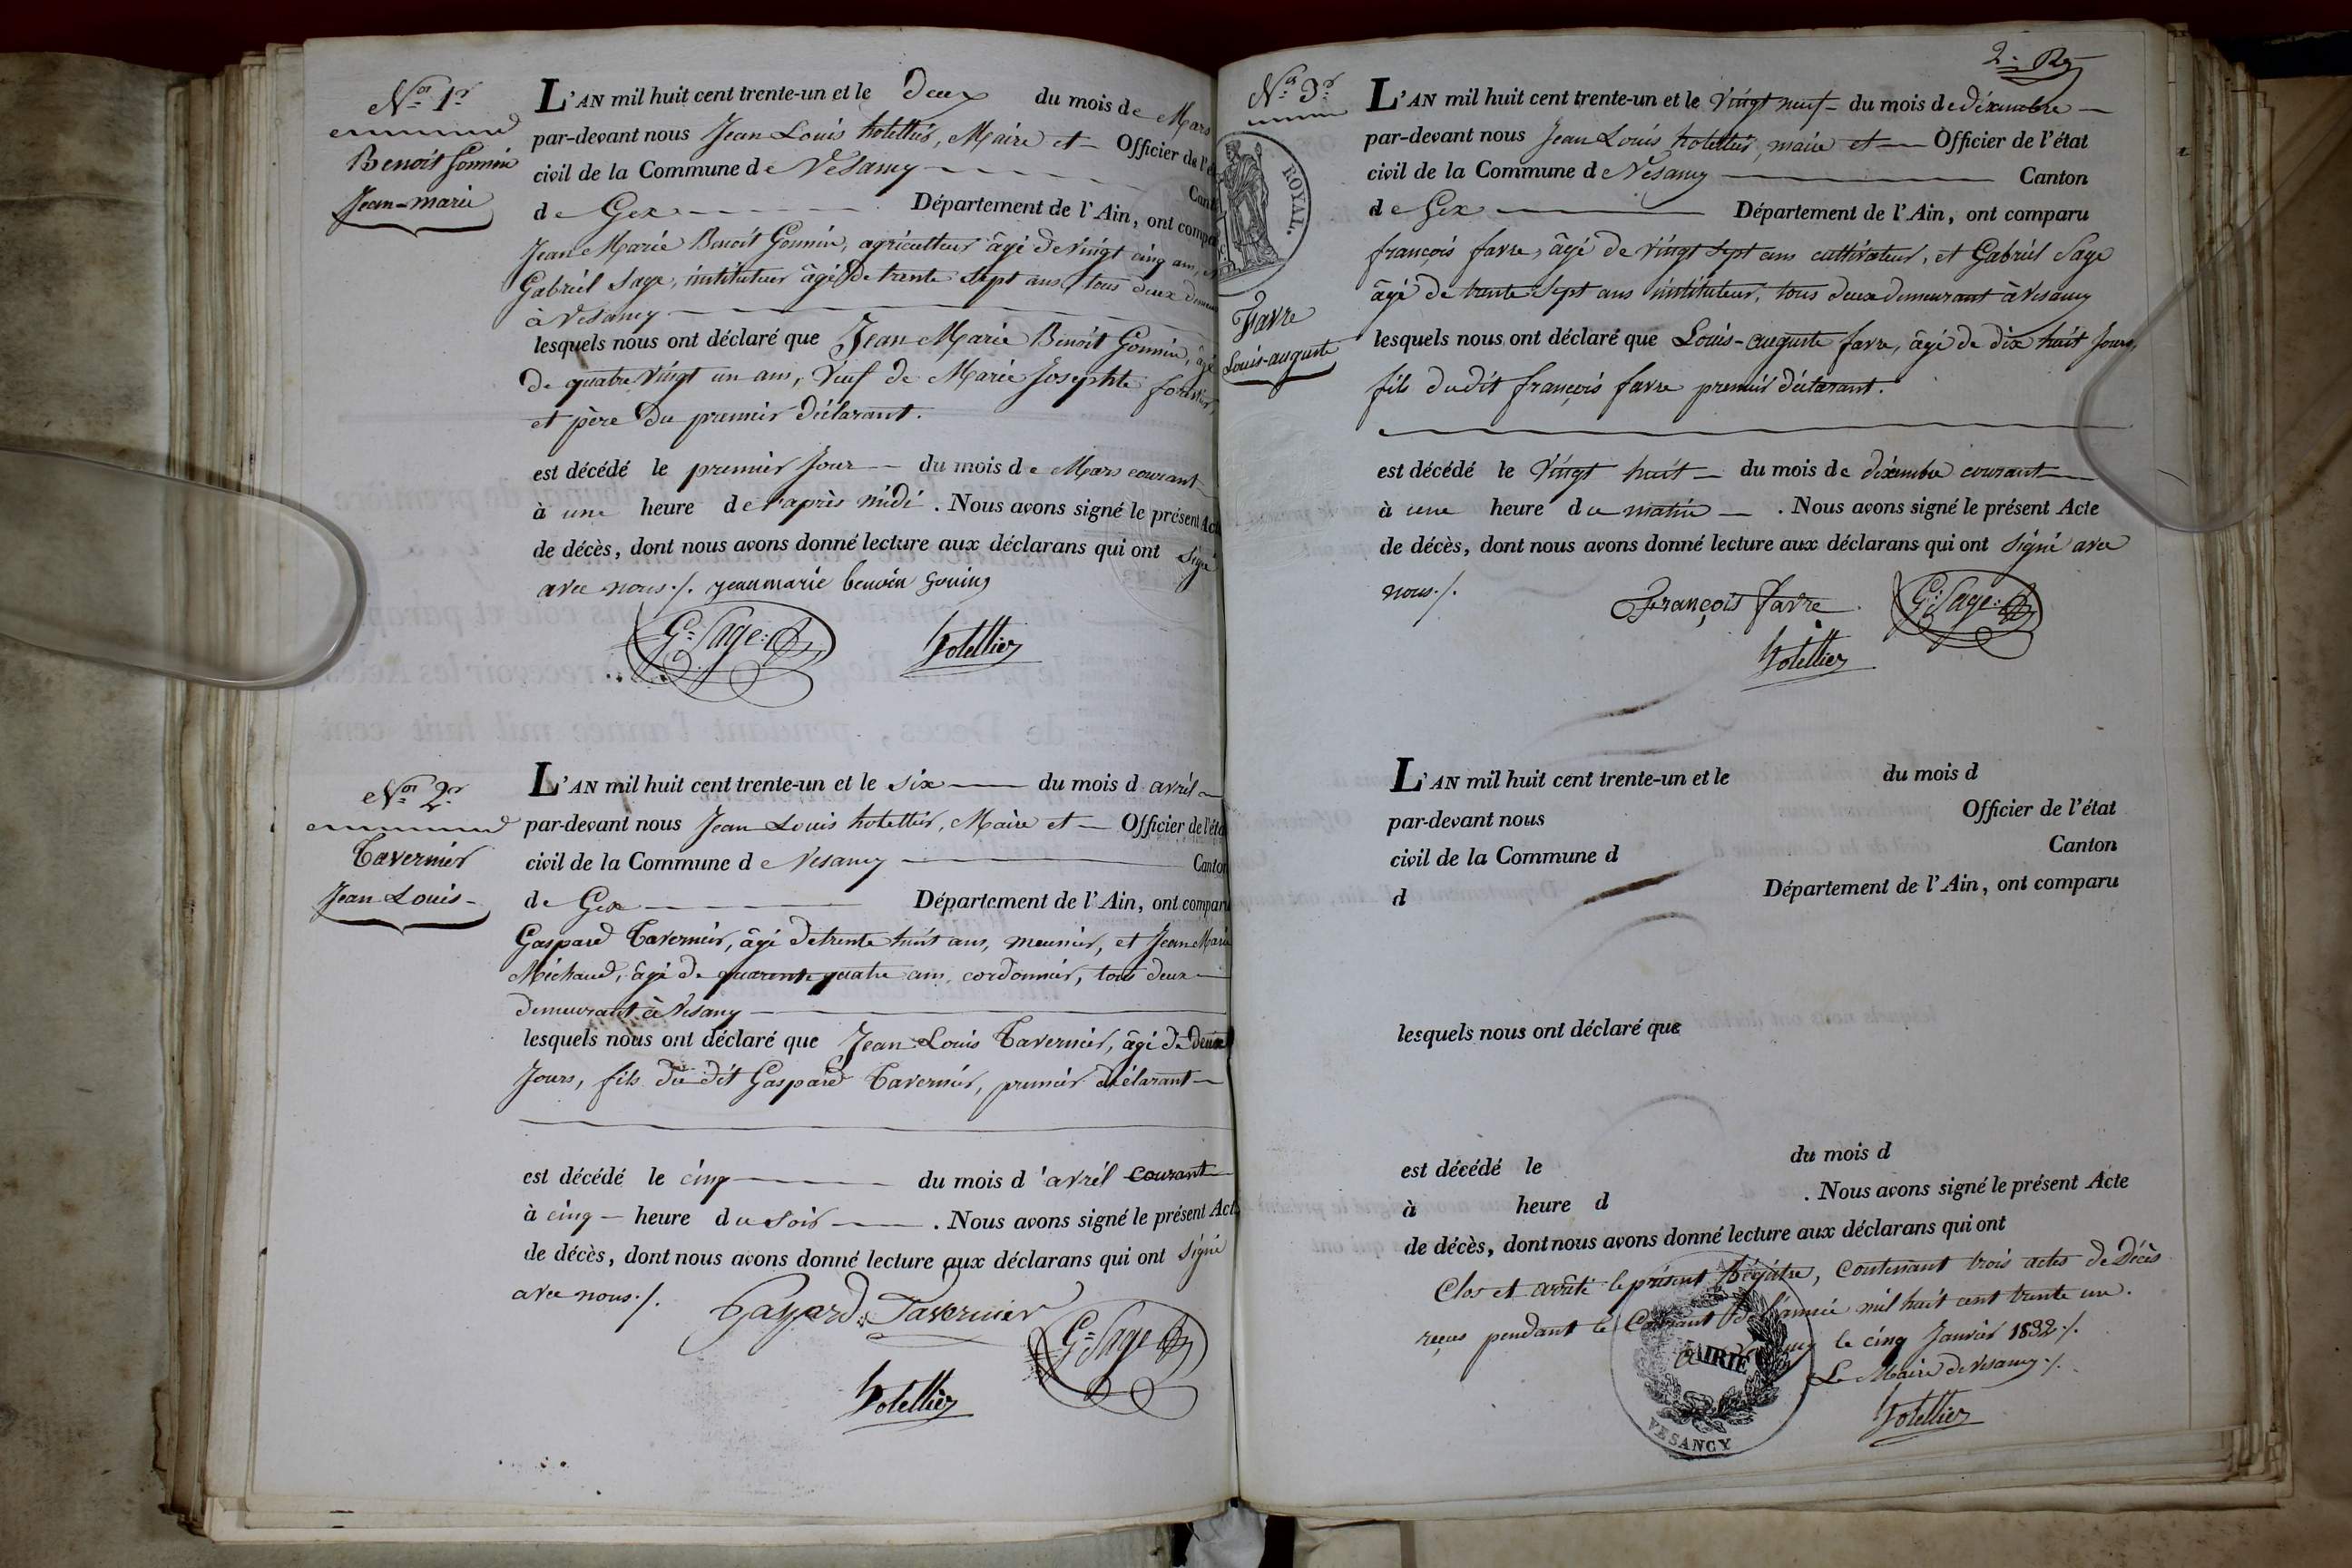 N.° 1.r
Benoit Gonnin
Jean-marie
L'AN mil huit cent trente-un et le deux du mois de Mars
par-devant nous Jean Louis hotellier, Maire et Officier de l'ét
civil de la Commune de Vesancy Cant
de Gex Département de l'Ain, ont compa
Jean Marie Benoit Gonnin, agriculteur âgé de vingt cinq ans, et
Gabriel Sage, instituteur âgé de trente sept ans, tous deux demeu
à Vesancy
lesquels nous ont déclaré que Jean Marie Benoit Gonnin, âgé
de quatre vingt un ans, veuf de Marie Josephte
et père du premier déclarant.
est décédé le premier jour du mois de Mars courant
à une heure de l'après midi. Nous avons signé le présent Act
de décès, dont nous avons donné lecture aux déclarans qui ont signé
avec nous./. jean marie benoin gonin
G. Sage
hotellier
N.° 2.r
Tavernier
Jean Louis
L'AN mil huit cent trente-un et le six du mois d avril
par-devant nous Jean Louis hotellier, Maire et Officier de l'éta
civil de la Commune de Vesancy Canton
de Gex Département de l'Ain, ont comparu
Gaspard Tavernier, âgé de trente huit ans, meunier, et Jean Marie
Méchaud, âgé de quarente quatre ans, cordonnier, tous deux
demeurant à Vesancy
lesquels nous ont déclaré que Jean Louis Tavernier, âgé de deux
jours, fils du dit Gaspard Tavernier, premier déclarant
est décédé le cinq du mois d'avril courant
à cinq heure du soir. Nous avons signé le présent Acte
de décès, dont nous avons donné lecture aux déclarans qui ont signé
avec nous./. Gaspard Tavernier
G. Sage
hotellier
2.
N.° 3.r
ROYAL.
Favre
Louis-auguste
L'AN mil huit cent trente-un et le vingt neuf du mois de déxembre
par-devant nous Jean Louis hotellier, maire et Officier de l'état
civil de la Commune de Vesancy Canton
de Gex Département de l'Ain, ont comparu
françois favre, âgé de vingt sept ans cultivateur, et Gabriel Sage
âgé de trente sept ans instituteur, tous deux demeurant à Vesancy
lesquels nous ont déclaré que Louis-auguste favre, âgé de dix huit jours,
fils dudit françois favre premier déclarant.
est décédé le vingt huit du mois de déxembre courant
à une heure du matin. Nous avons signé le présent Acte
de décès, dont nous avons donné lecture aux déclarans qui ont signé avec
nous./. François favre G. Sage
hotellier
L'AN mil huit cent trente-un et le du mois d
par-devant nous Officier de l'état
civil de la Commune d Canton
d Département de l'Ain, ont comparu
lesquels nous ont déclaré que
est décédé le du mois d
à heure d . Nous avons signé le présent Acte
de décès, dont nous avons donné lecture aux déclarans qui ont
Clos et arrêté le présent Régistre, contenant trois actes de Décès
reçus pendant le Courant de l'année mil huit cent trente un.
à Vesancy le cinq Janvier 1832./.
Le Maire de Vesancy./.
hotellier
MAIRIE
VESANCY